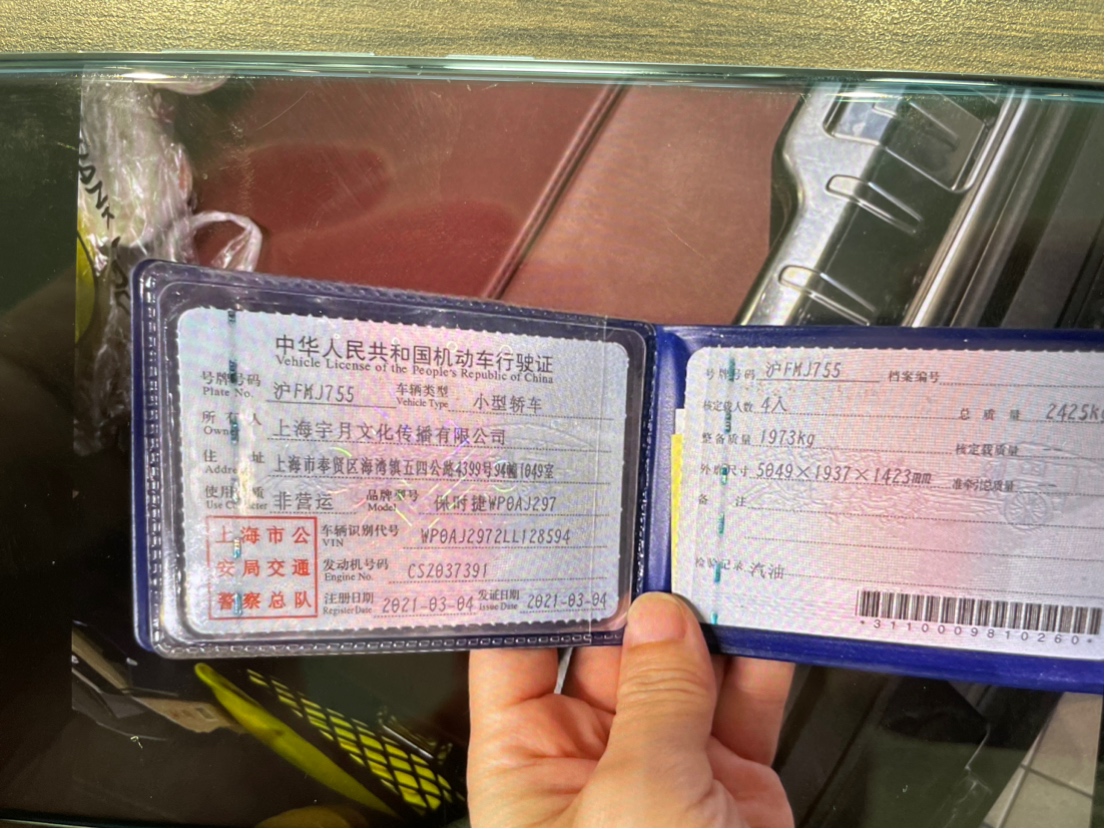 中华人民共和国机动车行驶证
Vehicle License of the People's Republic of China
号牌号码 沪FMJ755 车辆类型 小型轿车
Plate No. Vehicle Type
所有人 上海宇月文化传播有限公司
Owner
住址 上海市奉贤区海湾镇五四公路4399号94幢1049室
Address
使用性质 非营运 品牌型号 保时捷WP0AJ297
Use Character Model
上海市公
安局交通
警察总队
车辆识别代号 WP0AJ2972LL128594
VIN
发动机号码 CS2037391
Engine No.
注册日期 2021-03-04 发证日期 2021-03-04
Register Date Issue Date
号牌号码 沪FMJ755 档案编号
核定载人数 4人 总质量 2425kg
整备质量 1973kg 核定载质量
外廓尺寸 5049×1937×1423mm 准牵引总质量
备注
检验记录 汽油
*3110009810260*